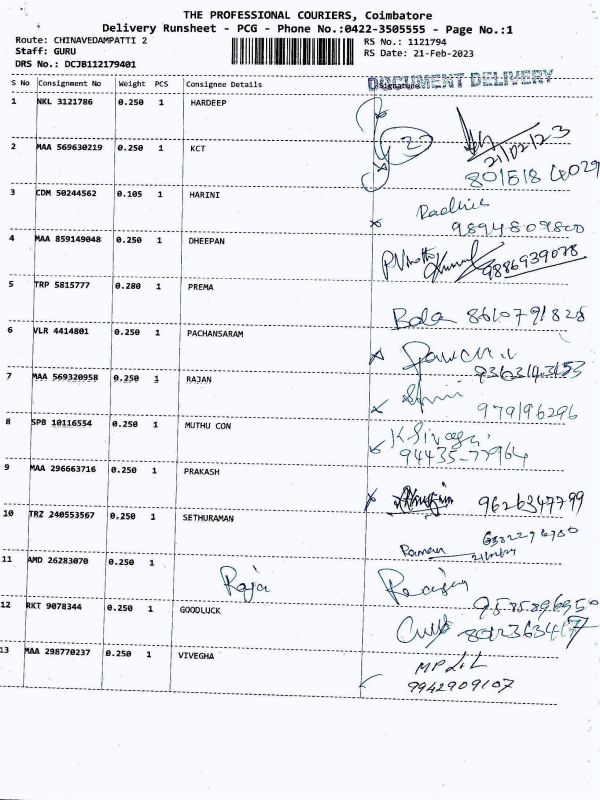 THE PROFESSIONAL COURIERS, Coimbatore
Delivery Runsheet - PCG - Phone No.:0422-3505555 - Page No.:1
Route: CHINAVEDAMPATTI 2
RS No.: 1121794
Staff: GURU
RS Date: 21-Feb-2023
DRS No.: DCJB112179401
DOCUMENT DELIVERY
S No Consignment No Weight PCS Consignee Details Signature
1 NKL 3121786 0.250 1 HARDEEP
21/02/23
2 MAA 569630219 0.250 1 KCT
3 CDM 50244562 0.105 1 HARINI
9894809800
4 MAA 859149048 0.250 1 DHEEPAN
9886939078
5 TRP 5815777 0.280 1 PREMA
Bala 8610791828
6 VLR 4414801 0.250 1 PACHANSARAM
7 MAA 569320958 0.250 1 RAJAN
979196296
8 SPB 10116554 0.250 1 MUTHU CON
94435-77964
9 MAA 296663716 0.250 1 PRAKASH
9626347799
10 TRZ 240553567 0.250 1 SETHURAMAN
Raman
11 AMD 26283070 0.250 1
Raja
12 RKT 9078344 0.250 1 GOODLUCK
13 MAA 298770237 0.250 1 VIVEGHA
9942909107